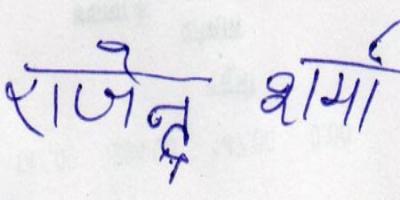 राजेन्द्र शर्मा